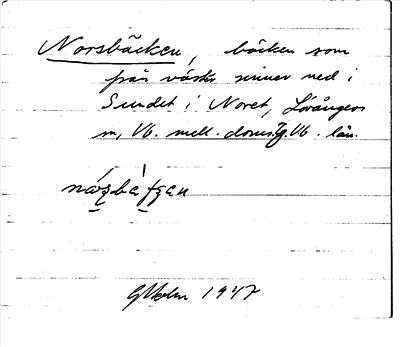 Norsbäcken, bäcken som
från väster rinner ned i
Sundet i Noret, Lövångers
sn, Vb. mell. doms. Vb. län.
GHolm 1947